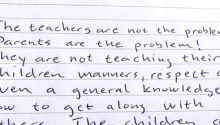 The teachers are not the proble
Parents are the problem!
hey are not teaching their
hildren manners, respect o
ven a general knowledge
ow to get along with
The children